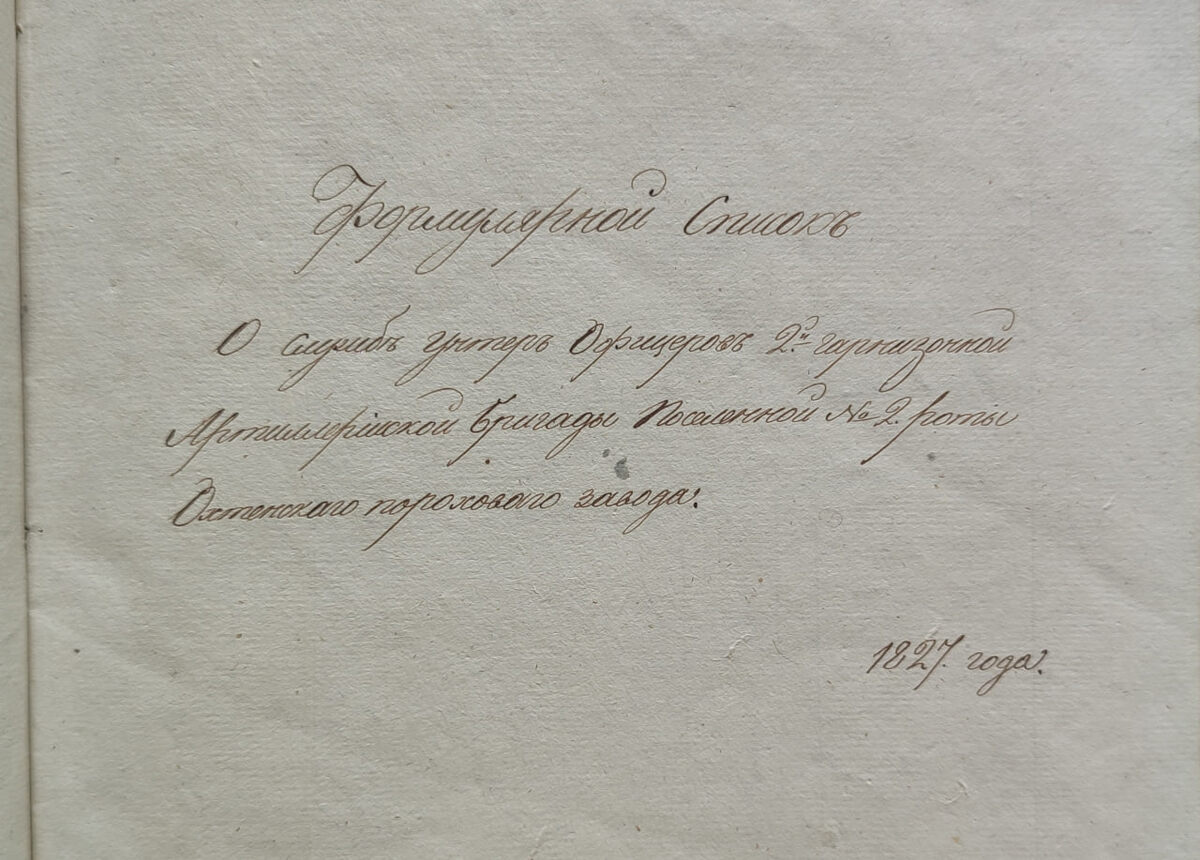 Формулярной Списокъ
О службѣ унтеръ Офицеровъ 2й гарнизонной
Артиллерійской бригады Поселенной № 2. роты
Охтенскаго пороховаго завода.
1827. года.